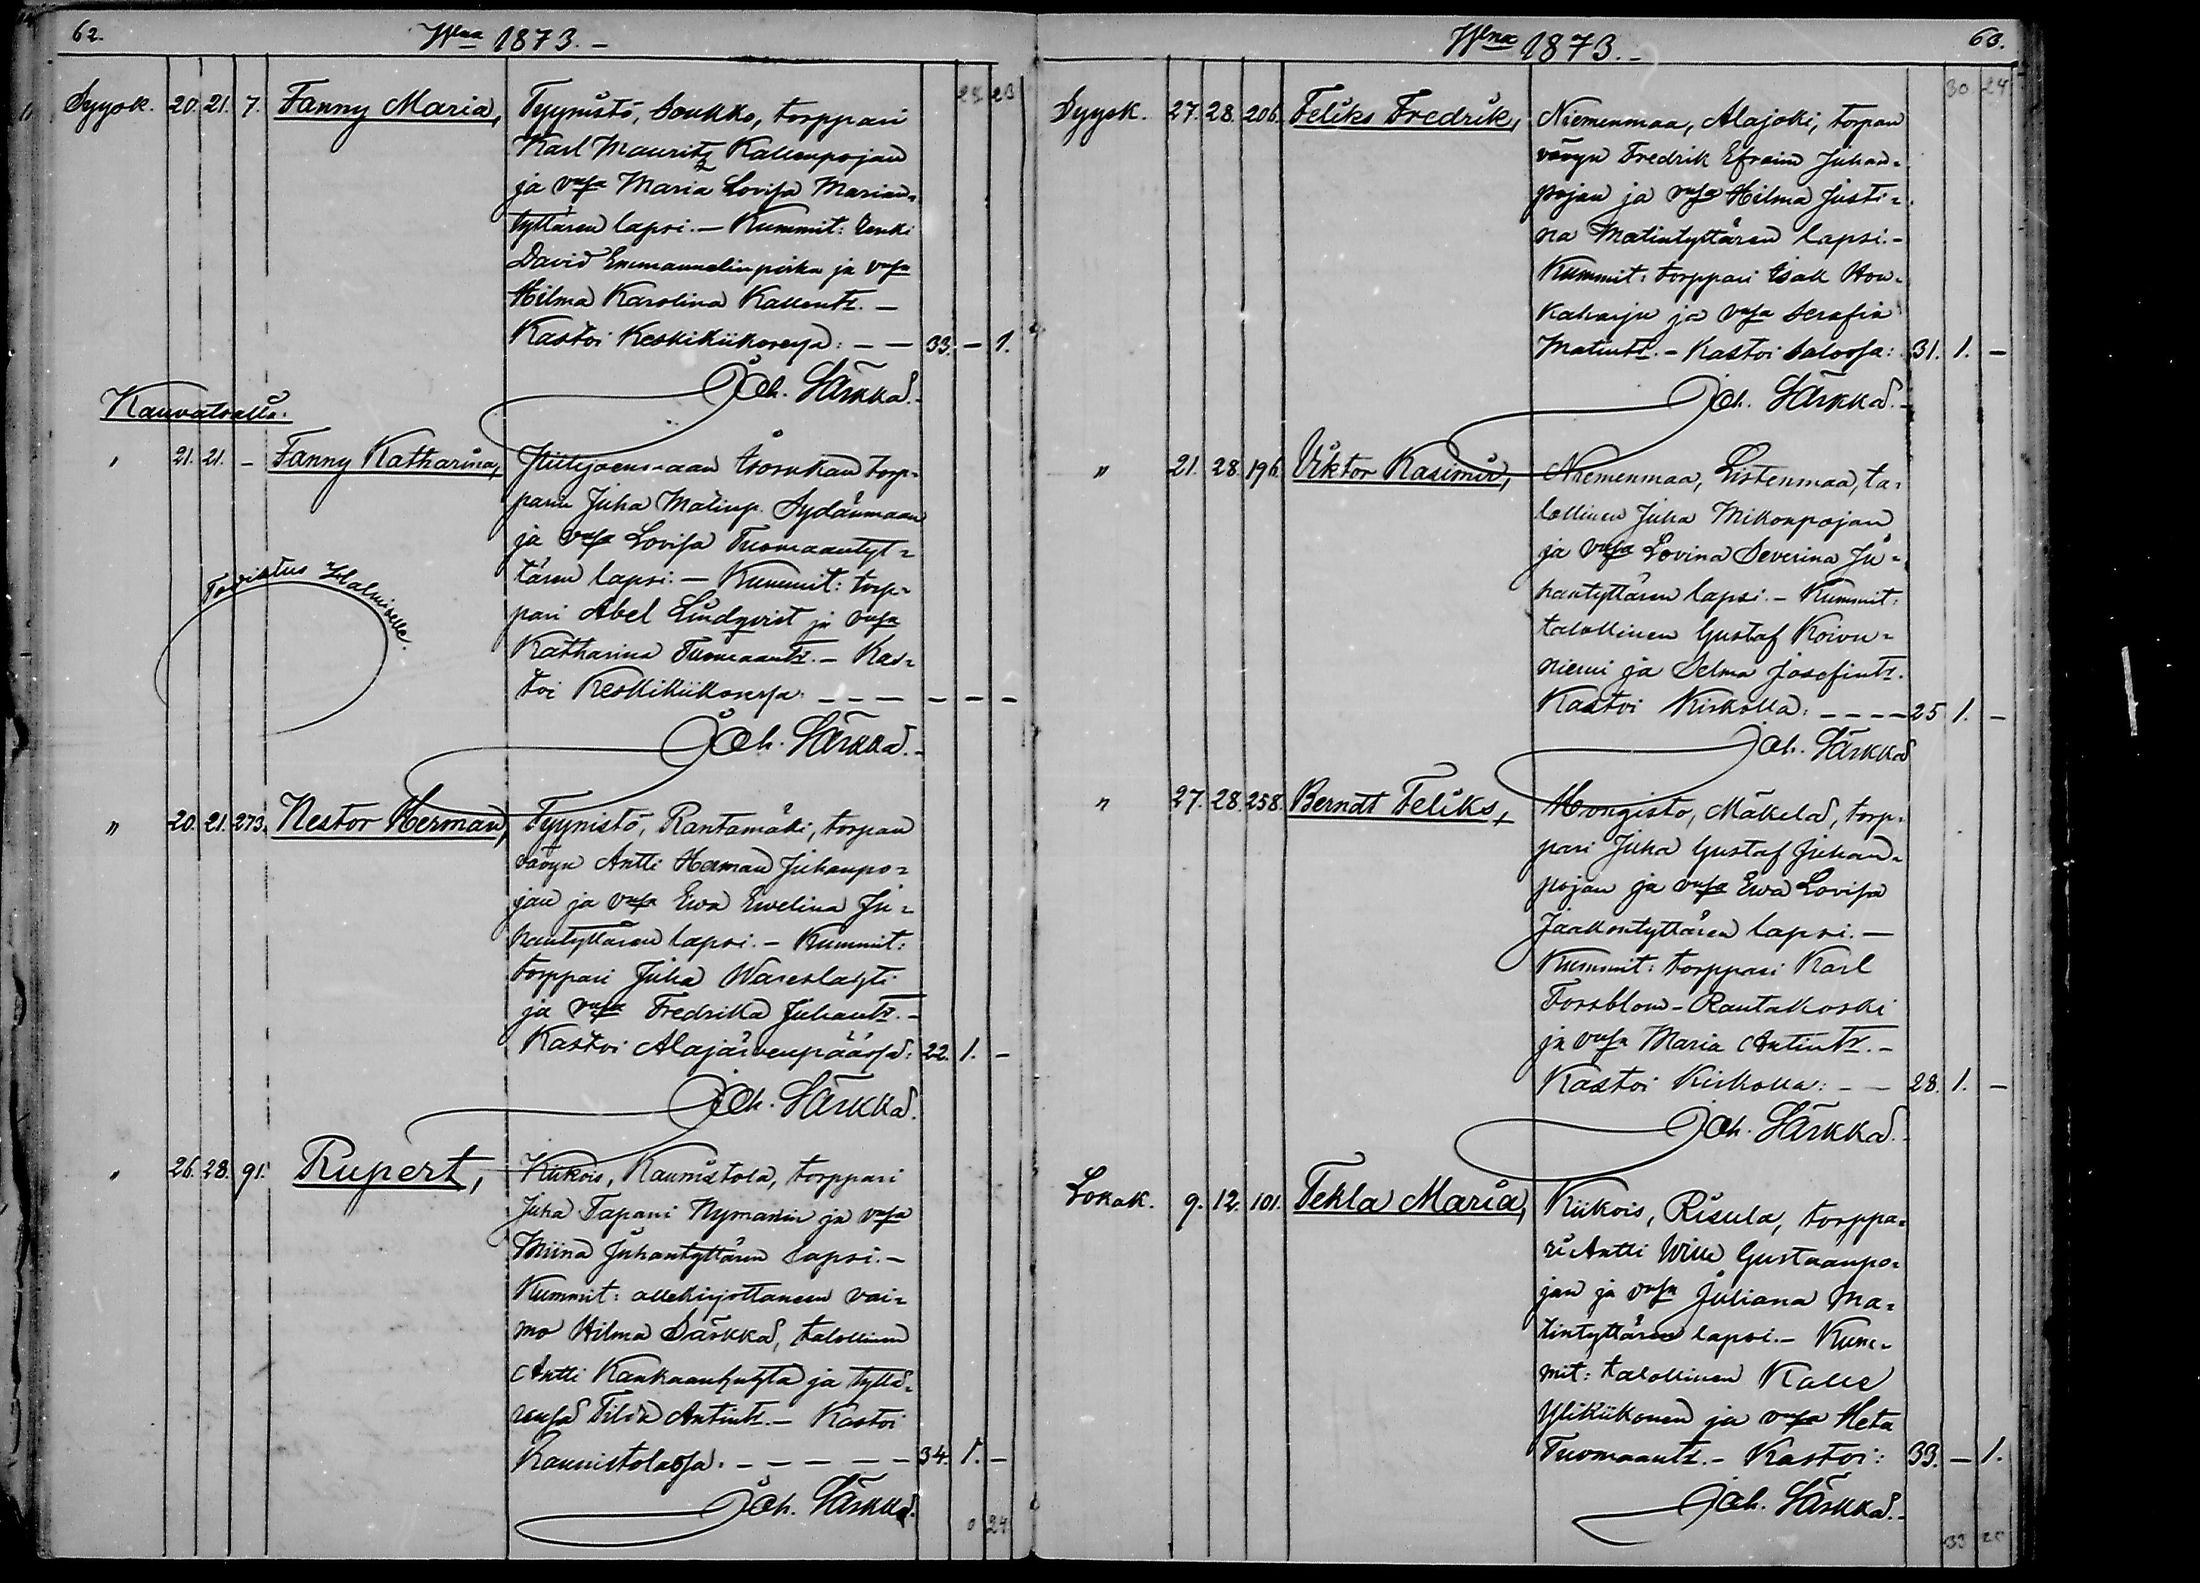 62.
Wnna 1873. -
28 23
Syysk. 20. 21. 7. Fanny Maria, Tyynistö, Soukko, torppari
Karl Mauritz Kallenpojan
ja vsa Maria Lovisa Marian-
tyttären lapsi. - Kummit: Renki
David Emmanuelinpoika ja vsa
Hilma Karolina Kallentr. -
Kastoi Keskikiikoresa: - - 33. - 1.
Joh. Särkkä.
Kauvatsalla.
" 21. 21. - Fanny Katharina, Piilijoensuun torp-
parin Juha Matinp. Sydänmaan
ja vsa Lovisa Tuomaantyt-
tären lapsi. - Kummit: torp-
pari Abel Lindqvist ja vsa
Katharina Tuomaantr. - Kas-
toi Keskikiikoresa: - - - - - -
Todistus Halmiselle.
Joh. Särkkä. -
" 20. 21. 273. Nestor Herman, Tyynistö, Rantamäki, torpan
vävyn Antti Herman Juhanpo-
jan ja vsa Ewa Ewelina Ju-
hantyttären lapsi. - Kummit:
torppari Juha Wareslahti
ja vsa Fredrika Juhantr. -
Kastoi Alajärvenpääsä: 22. 1. -
Joh. Särkkä.
" 26. 28. 91. Rupert, Kiikois, Raunistola, torppari
Juha Tapani Nymanin ja vsa
Miina Juhantyttären lapsi. -
Kummit: allekirjottaneen vai-
mo Hilma Särkkä, talollinen
Antti Kankaanhuhta ja tyttä-
rensä Tilda Antintr. - Kastoi
Raunistolassa. - - - - - 34. 1. -
Joh. Särkkä.
0 24
Wnna 1873. -
63.
30 24
Syysk. 27. 28. 206. Feliks Fredrik, Niemenmaa, Alajoki, torpan
vävyn Fredrik Efraim Juhan-
pojan ja vsa Hilma Justi-
na Matintyttären lapsi. -
Kummit: torppari Isak Hon-
kaharju ja vsa Serafia
Matintr. - Kastoi Salossa: 31. 1. -
Joh. Särkkä. -
" 21. 28. 196. Viktor Kasimir, Niemenmaa, Listenmaa, ta-
lollinen Juha Mikonpojan
ja vsa Lovina Severina Ju-
hantyttären lapsi. - Kummit:
talollinen Gustaf Koivu-
niemi ja Selma Josefintr.
Kastoi Kirkolla: - - - - 25 1. -
Joh. Särkkä
" 27. 28. 258. Berndt Feliks, + Hrongisto, Mäkelä, torp-
pari Juha Gustaf Juhan-
pojan ja vsa Ewa Lovisa
Jaakontyttären lapsi. -
Kummit: torppari Karl
Forsblom - Rautakoski
ja vsa Maria Antintr. -
Kastoi Kirkolla: - - 28. 1. -
Joh. Särkkä. -
Lokak. 9. 12. 101. Tekla Maria, Kiikois, Risula, torppa-
ri Antti Wille Gustaanpo-
jan ja vsa Juliana Ma-
tintyttären lapsi. - Kum-
mit: talollinen Kalle
Ylikiikonen ja vsa Heta
Tuomaantr. - Kastoi: 33. - 1.
Joh. Särkkä. -
33 25